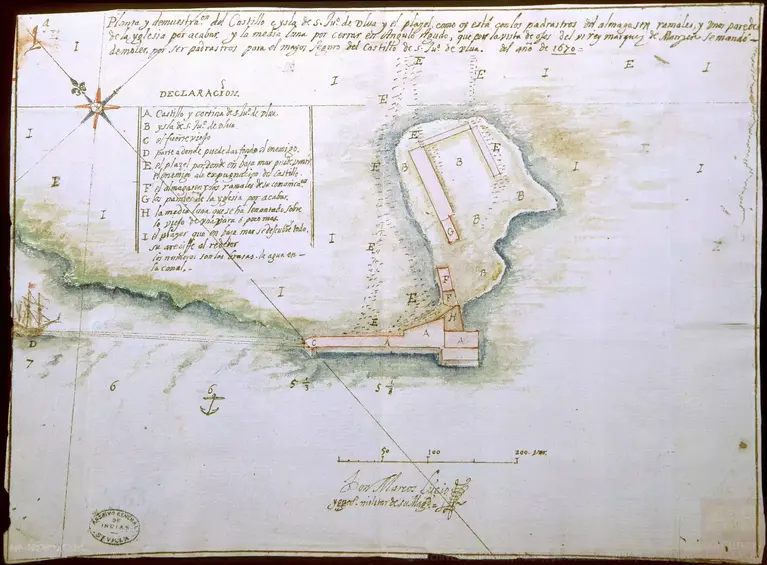 Planta y demuestraon del Castillo e ysla de S. Juo. de Vlua y el plazel, como oy esta con los padrastros del almagasen ramales, y unas paredes
de la yglesia por acabar, y la media luna por cerrar en Angulo Agudo, que por la vista de ojos del vi rey marquez de Manzera se mando
demoler, por ser padrastros para el mayor seguro del Castillo de S. Juo. de Vlua. del año de 1670
DECLARACION
A Castillo y cortina de S. Juo. de Vlua.
B ysla de S. Juo. de Vlua
C el fuerte viejo
D parte a donde puede dar fondo el enemigo
E el plazel por donde en baxa mar puede venir
el enemigo a la expugnacion del Castillo
F el almagasen y los ramales de su comunicaon
G las paredes de la yglesia por acabar
H la media luna que se ha lebantado sobre
lo viejo de
I el plazer que en baxa mar se descubre todo,
su arrecife al rededor
los numeros son las brasas de agua en
la canal
I
I
I
E
I
E
I
I
I
I
I
E
E
E
B
B
B
B
B
G
I
I
E
E
F
F
H
E
C
A
A
A
D
7
6
6
5 1/2
5 1/2
50 100 200 var.
Don Marcos Lucio
yngro. militar de su Magd
ARCHIVO GENERAL
DE
INDIAS
SEVILLA